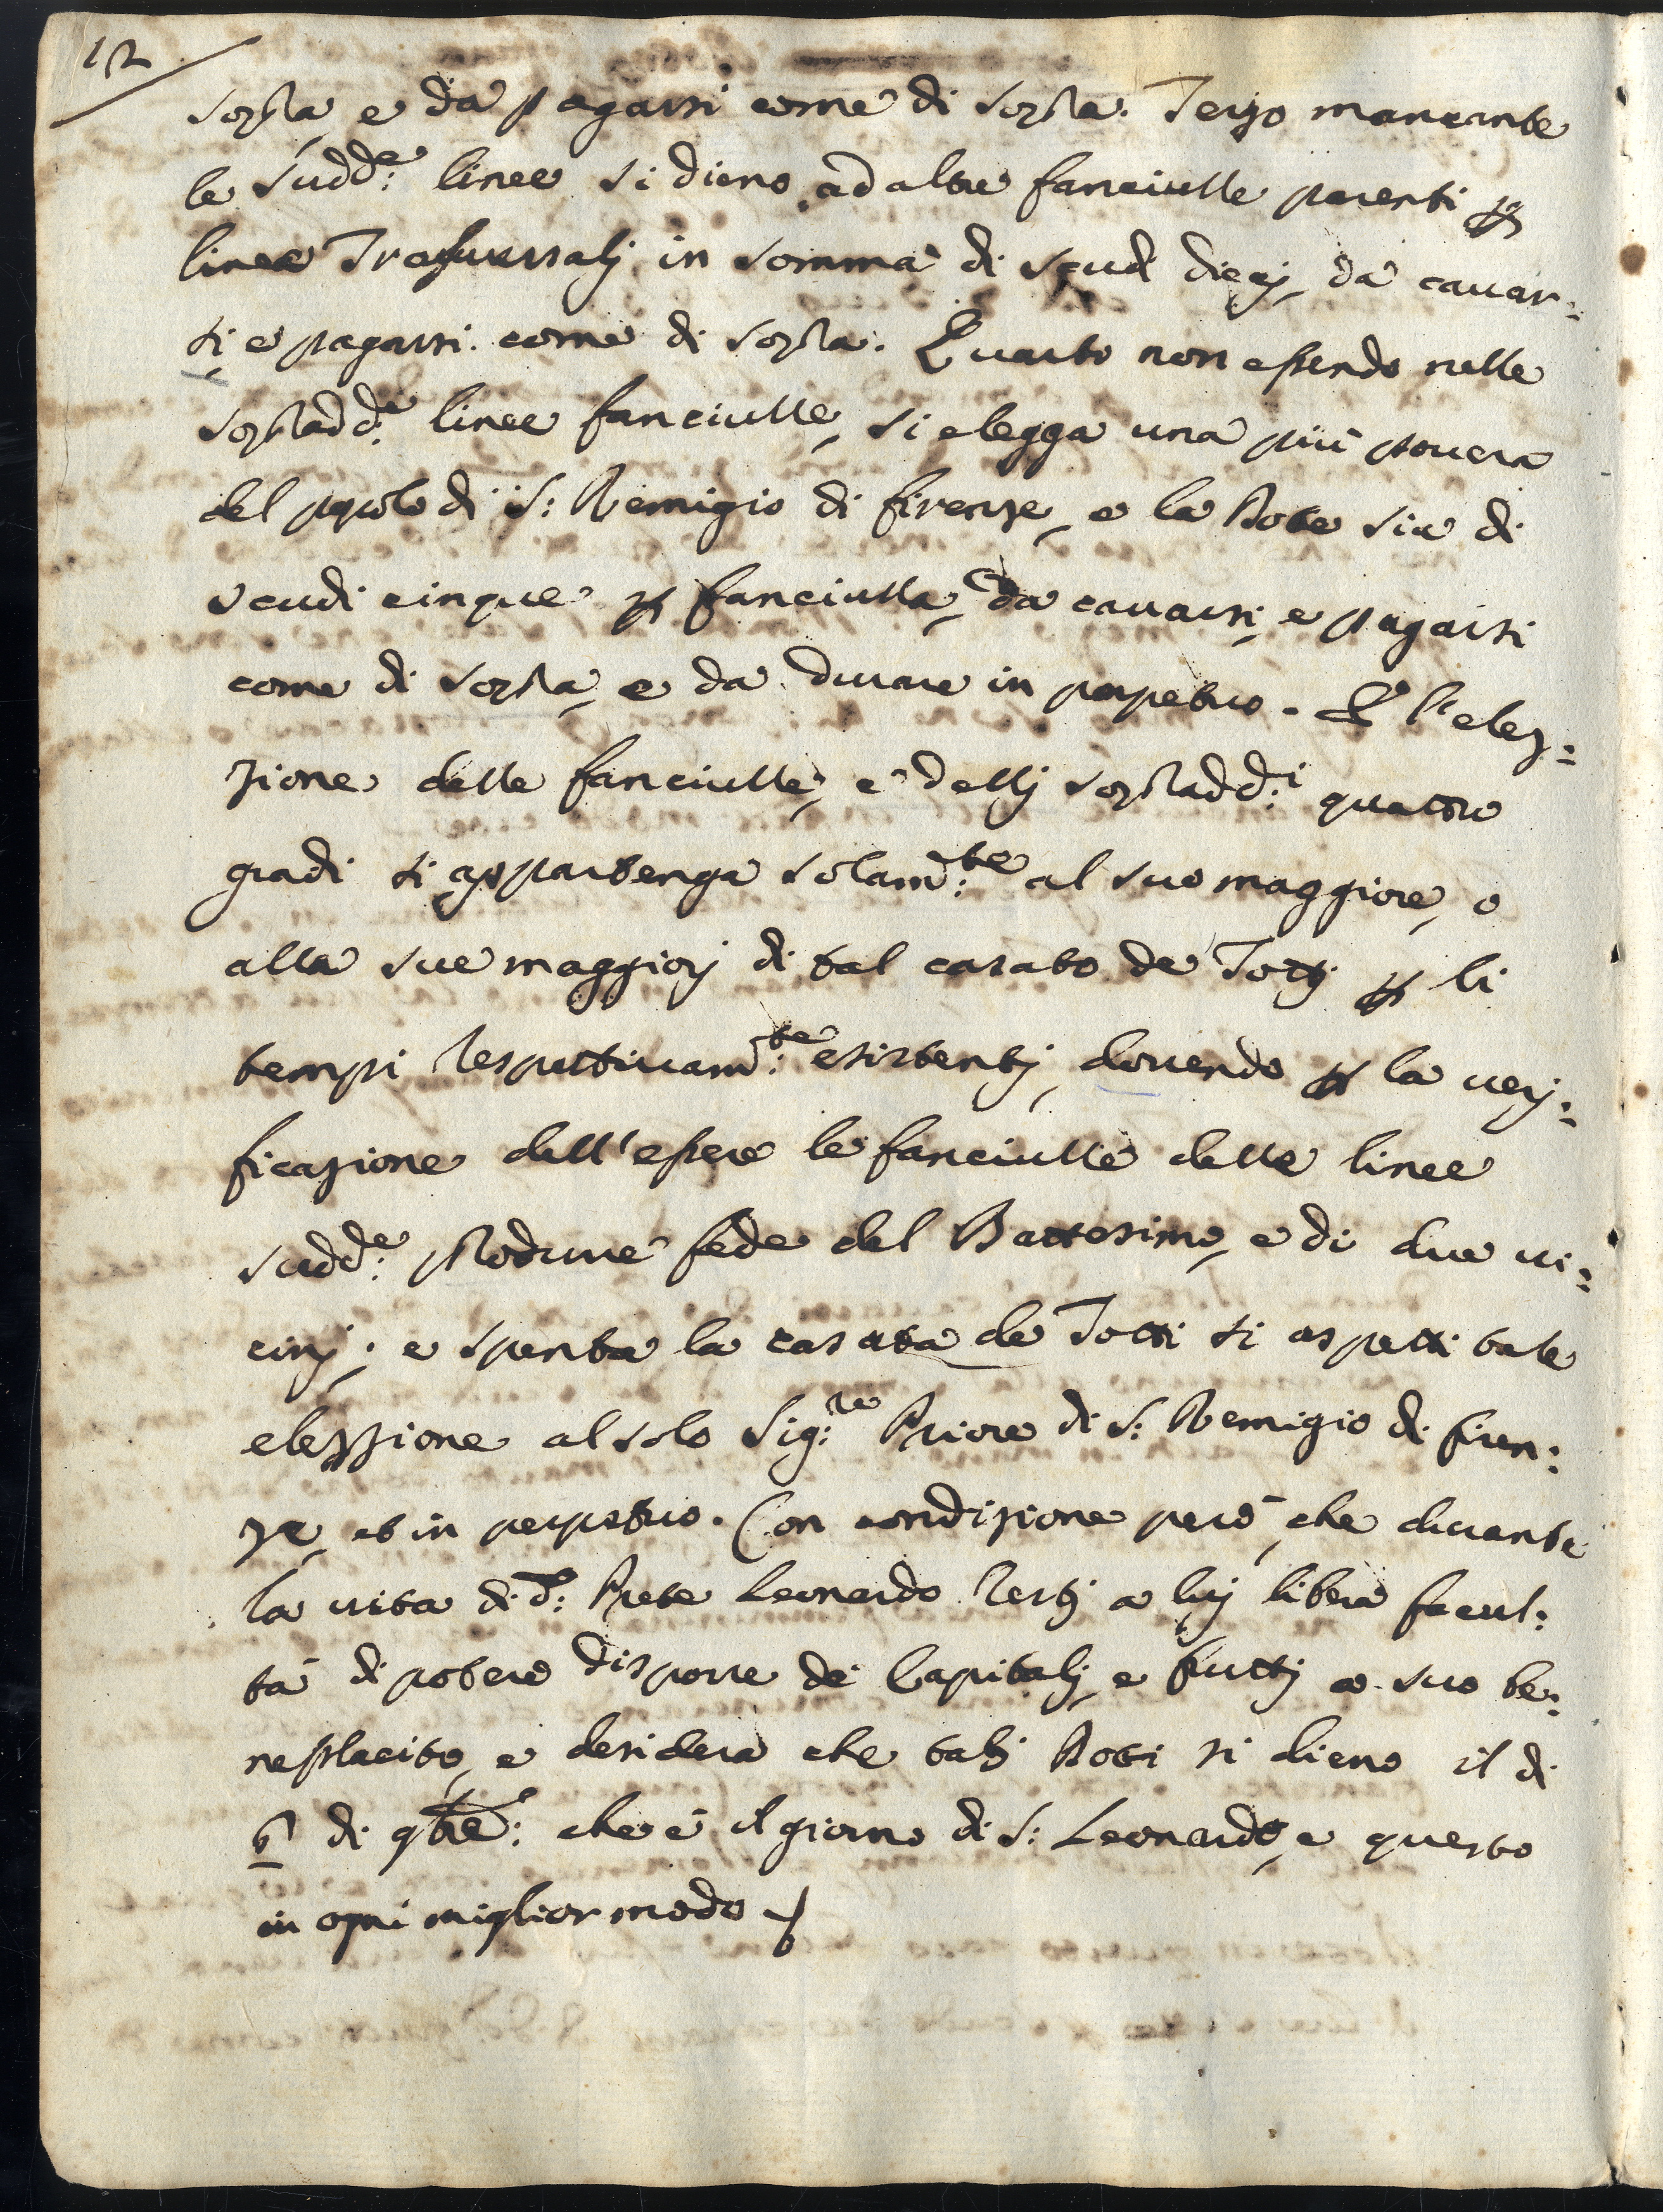 12
sopra, e da pagarsi come di sopra. Terzo mancante
le sudd:e linee si dieno ad altre fanciulle parenti p
linee Trasuersalj in somma di scudi diecj, da cauar=
si, e pagarsi come di sopra. Quarto non essendo nelle
sopradd:e linee fanciulle, si elegga una più pouera
del popolo di S: Remigio di firenze, e la Dote sia di
scudi cinque p fanciulla, da cauarsi, e pagarsi
come di sopra, e da durare in perpetuo. E l'elez=
zione delle fanciulle, e dellj sopradd:i quattro
gradi si appartenga solam:te al suo maggiore, o
alle sue maggiorj di tal casato de Totti p li
tempi respettiuam:te esistentj, douendo p la uerj=
ficazione dell'essere le fanciulle delle linee
sudd:e produrre fede del Battesimo, e di due ui=
cinj; e spenta la casata de Totti si aspetti tale
elezzione al solo Sig:re Priore di S: Remigio di firen=
ze, et in perpetuo. Con condizione però, che durante
la uita di d:o Prete Leonardo restj a luj libera facul=
tà di potere disporre de Capitalj, e fruttj a suo be=
neplacito, e desidera che talj Doti si dieno il di
6 di 9bre: che è il giorno di S: Leonardo, e questo
in ogni miglior modo